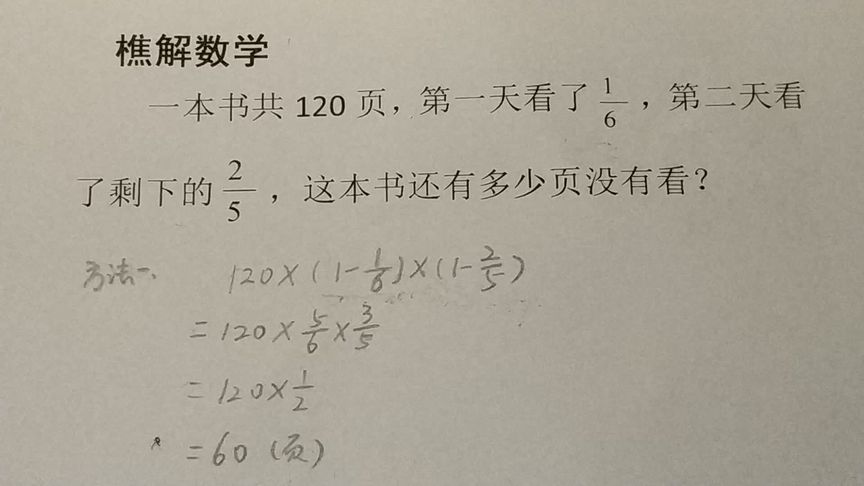 樵解数学
一本书共 120 页，第一天看了 1/6 ，第二天看
了剩下的 2/5 ，这本书还有多少页没有看？
方法一、 120×(1-1/6)×(1-2/5)
=120×5/6×3/5
=120×1/2
=60（页）